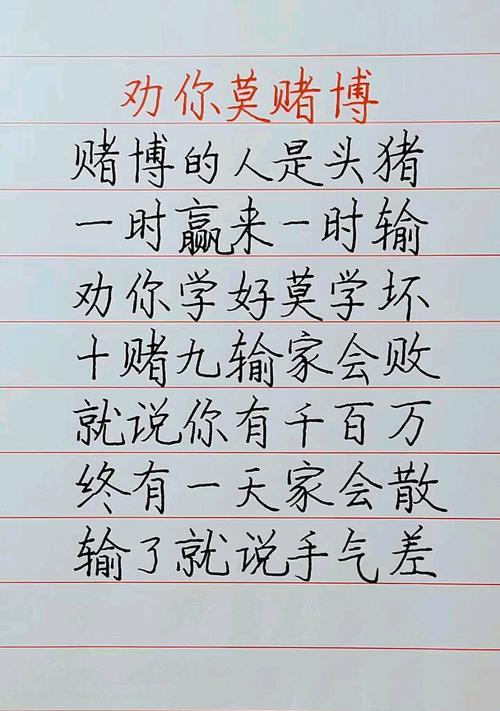 劝你莫赌博
赌博的人是头猪
一时赢来一时输
劝你学好莫学坏
十赌九输家会败
就说你有千百万
终有一天家会散
输了就说手气差